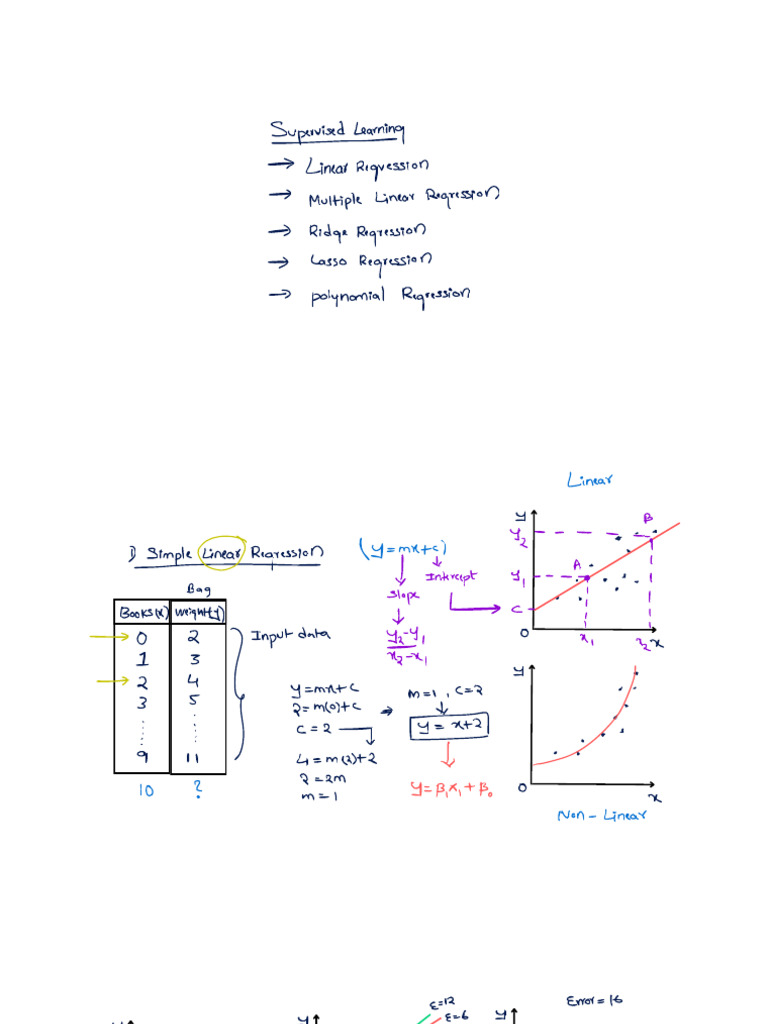 Supervised Learning
→ Linear Regression
→ Multiple Linear Regression
→ Ridge Regression
→ Lasso Regression
→ polynomial Regression
Linear
1) Simple Linear Regression
(y=mx+c)
Slope
Intercept
y₂-y₁
x₂-x₁
y
y₂
y₁
C
0
A
B
x₁
x₂
x
Bag
Books(x) Weight(y)
0 2
1 3
2 4
3 5
9 11
10 ?
Input data
y=mx+c
2=m(0)+c
c=2
4=m(2)+2
2=2m
m=1
m=1, c=2
y = x+2
y=β₁x₁+β₀
y
0
x
Non-Linear
y
y
ε=12
ε=6
y
Error=16